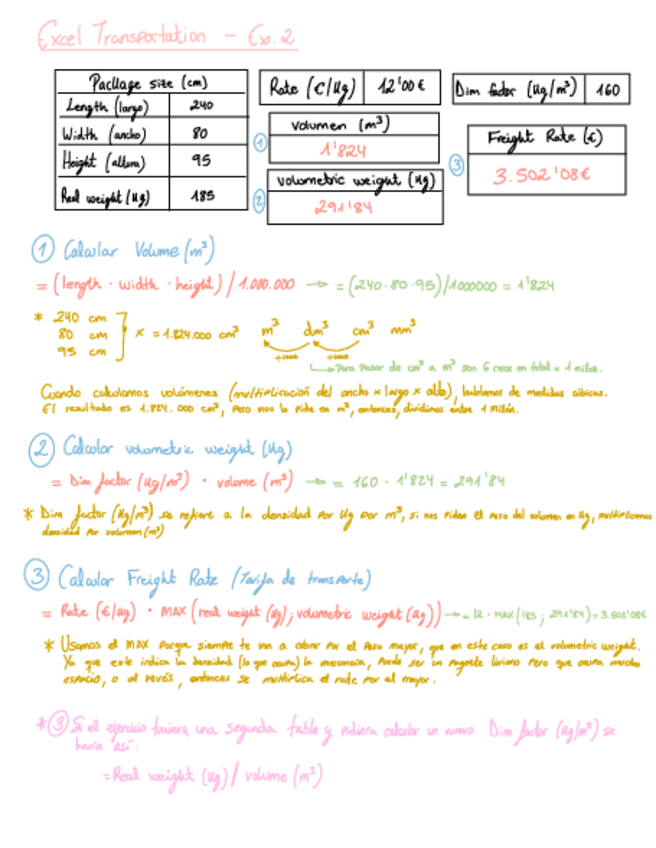 Excel Transportation - Ex. 2
Package size (cm)
Length (largo) 240
Width (ancho) 80
Height (altura) 95
Real weight (Kg) 185
Rate (€/Kg) 12'00€
Dim factor (Kg/m³) 160
① volumen (m³)
1'824
② volumetric weight (Kg)
291'84
③ Freight Rate (€)
3.502'08€
① Calcular Volume (m³)
= (length · width · height) / 1.000.000 → = (240·80·95)/1000000 = 1'824
* 240 cm
80 cm x = 1.824.000 cm³ m³ dm³ cm³ mm³
95 cm
÷1000 ÷1000
Para pasar de cm³ a m³ son 6 ceros en total = 1 millón.
Cuando calculamos volúmenes (multiplicación del ancho x largo x alto), hablamos de medidas cúbicas.
El resultado es 1.824.000 cm³, pero nos lo pide en m³, entonces, dividimos entre 1 millón.
② Calcular volumetric weight (Kg)
= Dim factor (Kg/m³) · volume (m³) → = 160 · 1'824 = 291'84
* Dim factor (Kg/m³) se refiere a la densidad por Kg por m³, si nos piden el peso del volumen en Kg, multiplicamos
densidad por volumen (m³)
③ Calcular Freight Rate (Tarifa de transporte)
= Rate (€/Kg) · MAX (real weight (Kg); volumetric weight (Kg)) → = 12 · MAX (185; 291'84) = 3.502'08€
* Usamos el MAX porque siempre te van a cobrar por el peso mayor, que en este caso es el volumetric weight.
Ya que este indica la densidad (lo que ocupa) la mercancía, puede ser un paquete liviano pero que ocupa mucho
espacio, o al revés, entonces se multiplica el rate por el mayor.
* ③ Si el ejercicio tuviera una segunda tabla y pidiera calcular un nuevo Dim factor (Kg/m³) se
haría así:
= Real weight (Kg) / volume (m³)